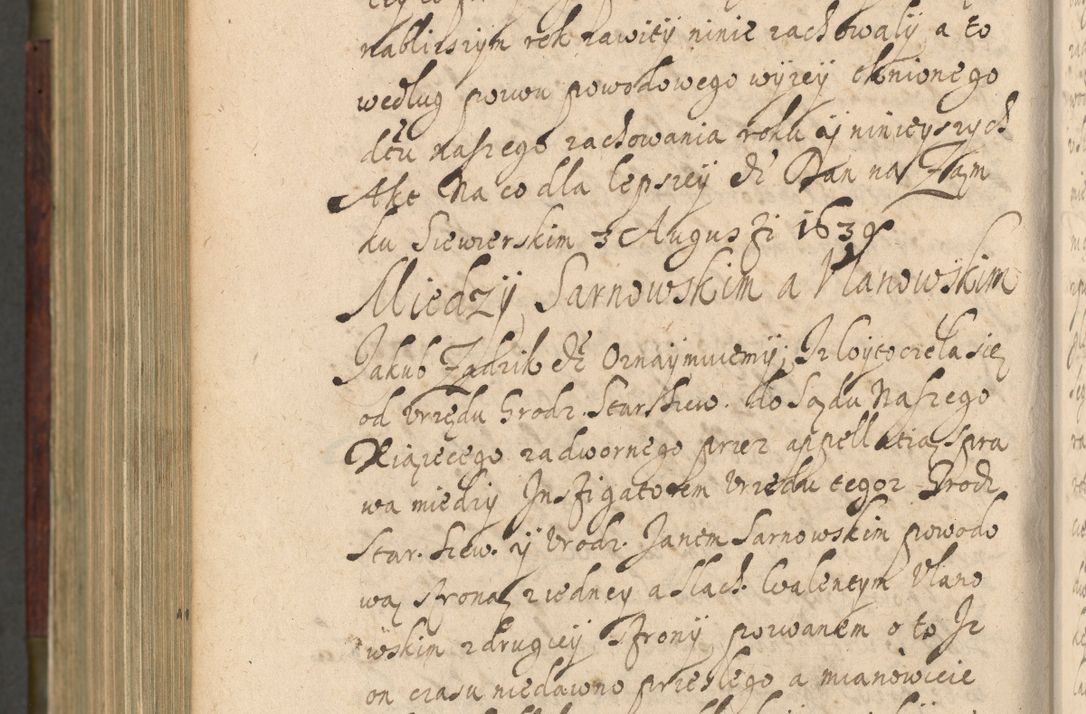 nabliszym rok zawity ninie zachowaly a to
według pozwu powodowego wyzey mnionego
dtu naszego zachowania roku aj ninieyszych
Akt Na co dla lepszey &c Dan na Zam
ku Siewierskim 3 Augusti 1639
Miedzy Sarnowskim a Vlanowskim
Jakub Zadzik &c Oznaymuiemy, Iz
od Vrzędu Grodz. Star Siew. do Sądu Naszego
Xiązęcego zadwornego przez appellatią spra
wa miedzy Instigatorem Vrzędu tegoz Grodz
Star. Siew. y Vrodz. Janem Sarnowskim powodo
wą stroną z iedney a Slach. Walentym Vlano
wskim z drugiey strony pozwanem o to Iz
on czasu niedawno przeszłego a mianowicie